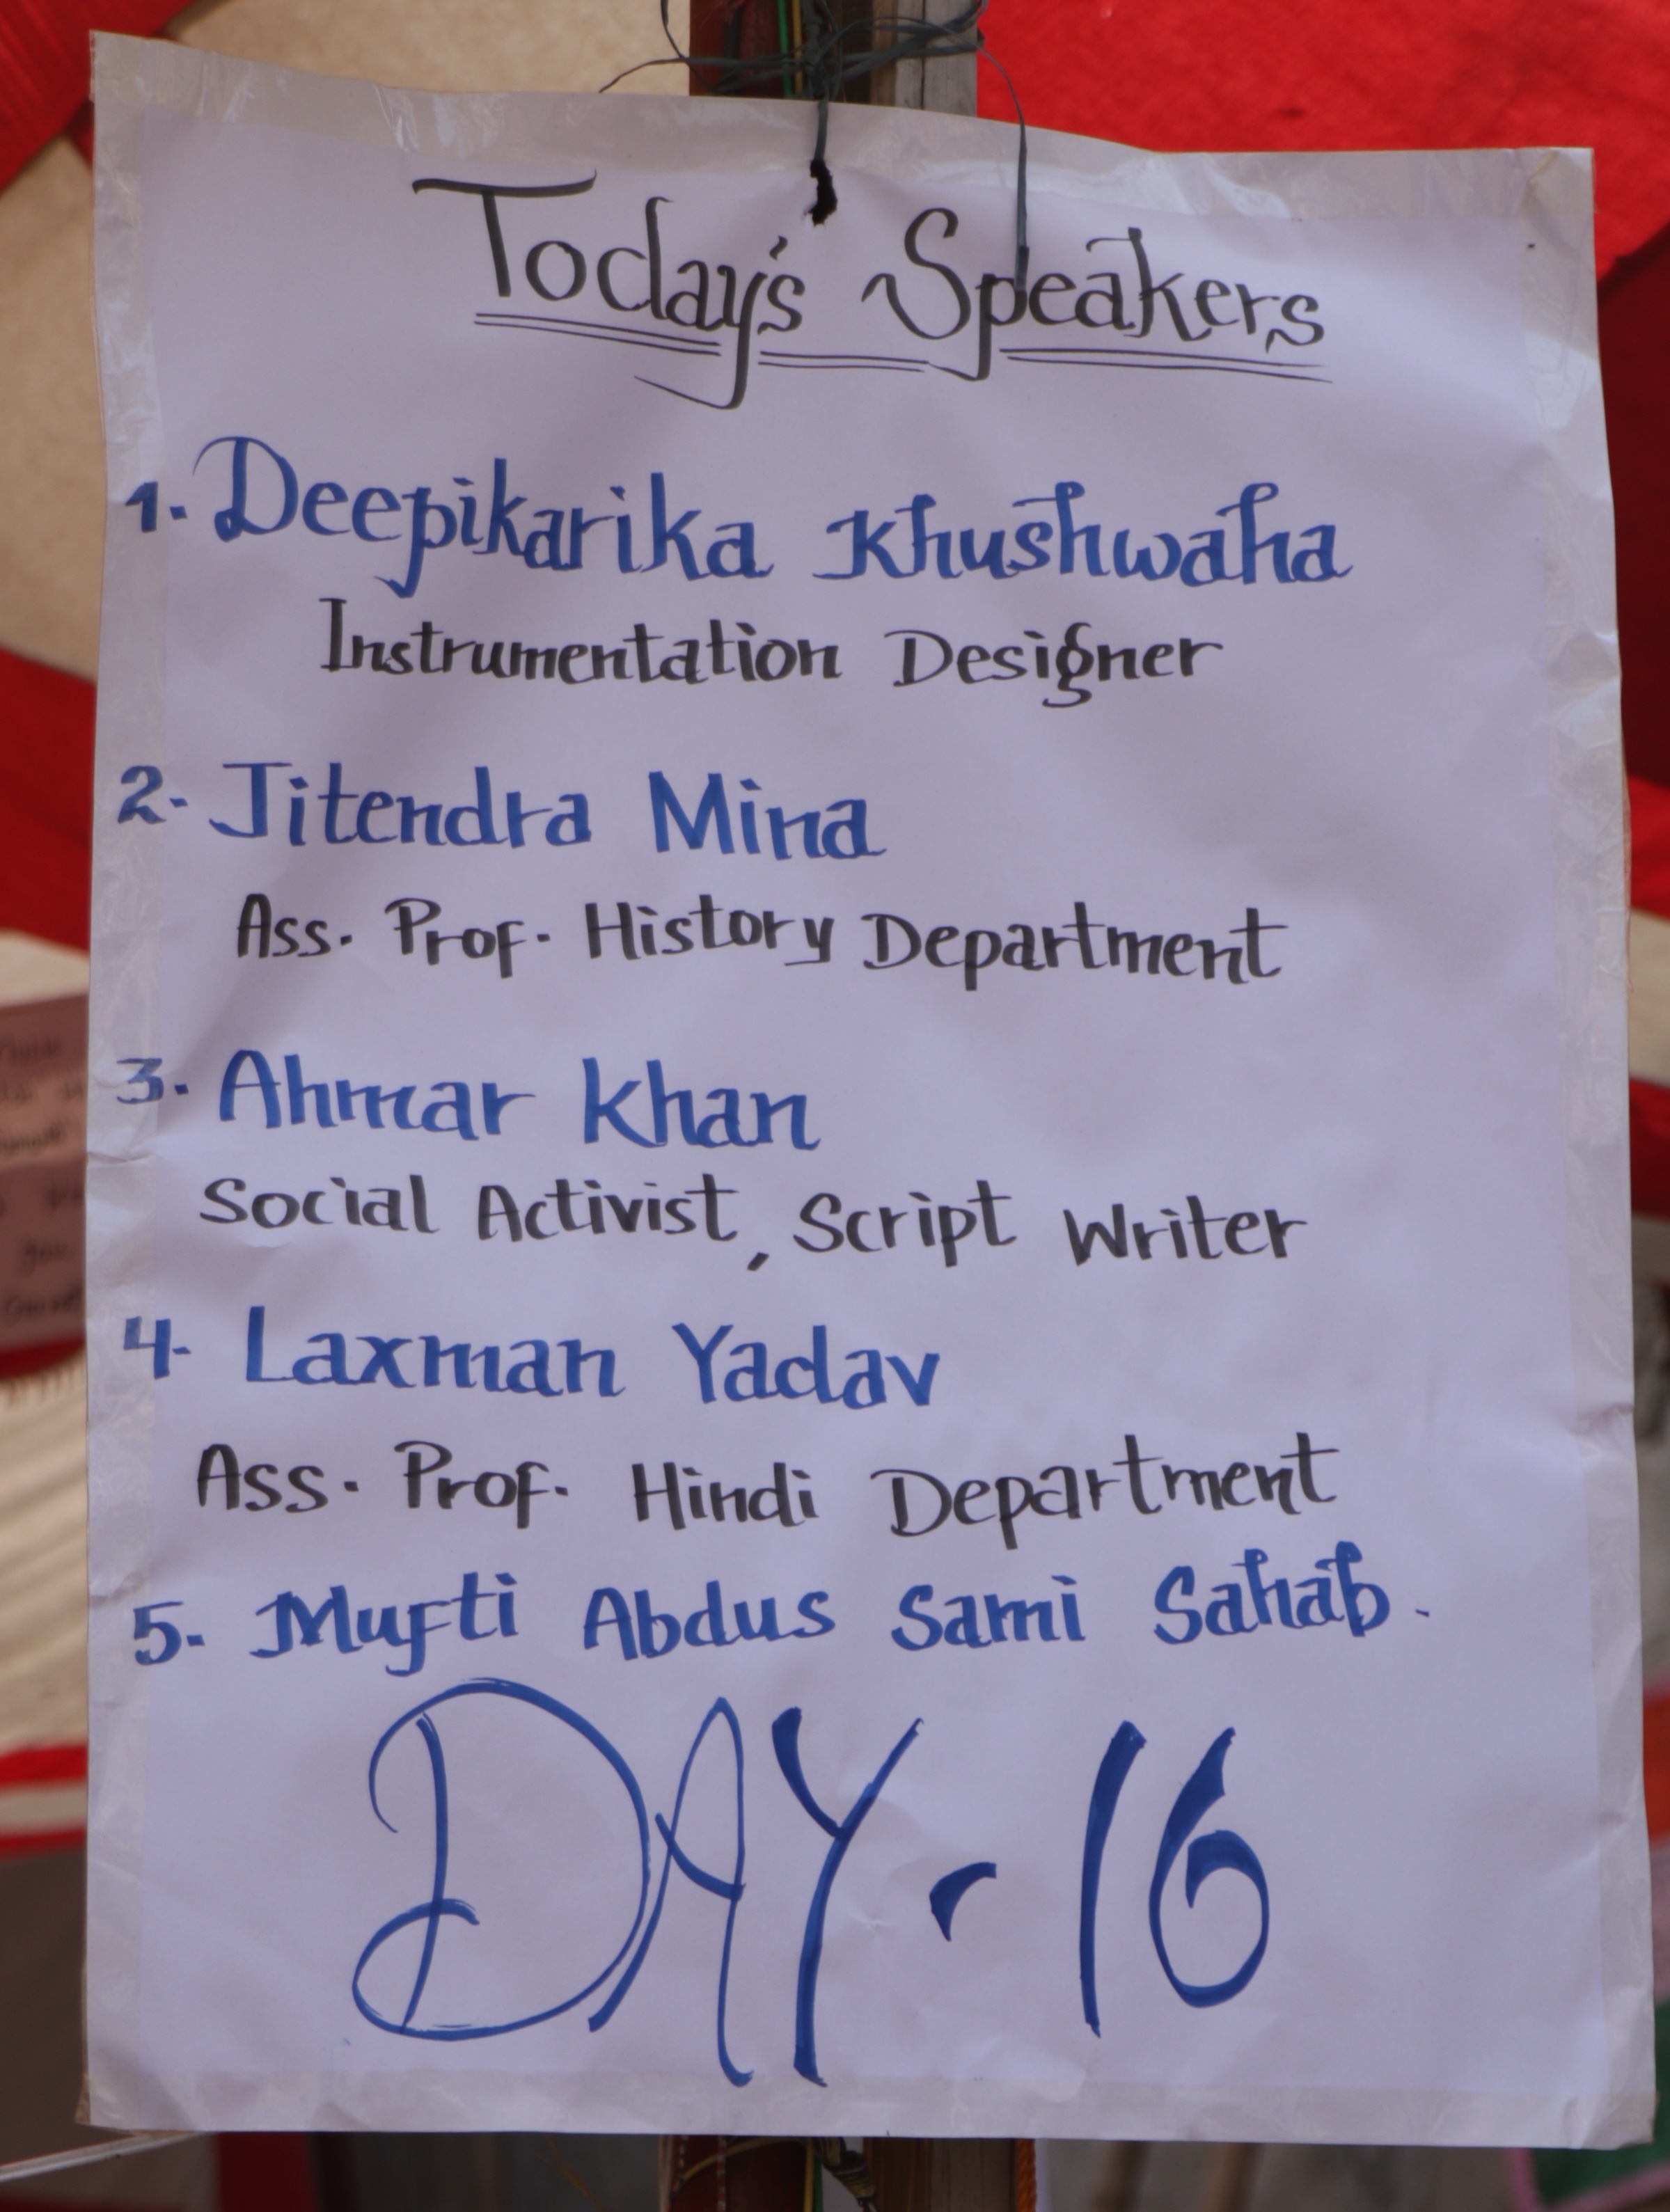 Today's Speakers
1. Deepikarika Khushwaha
Instrumentation Designer
2. Jitendra Mina
Ass. Prof. History Department
3. Ahmar Khan
Social Activist, Script Writer
4. Laxman Yadav
Ass. Prof. Hindi Department
5. Mufti Abdus Sami Sahab.
DAY-16